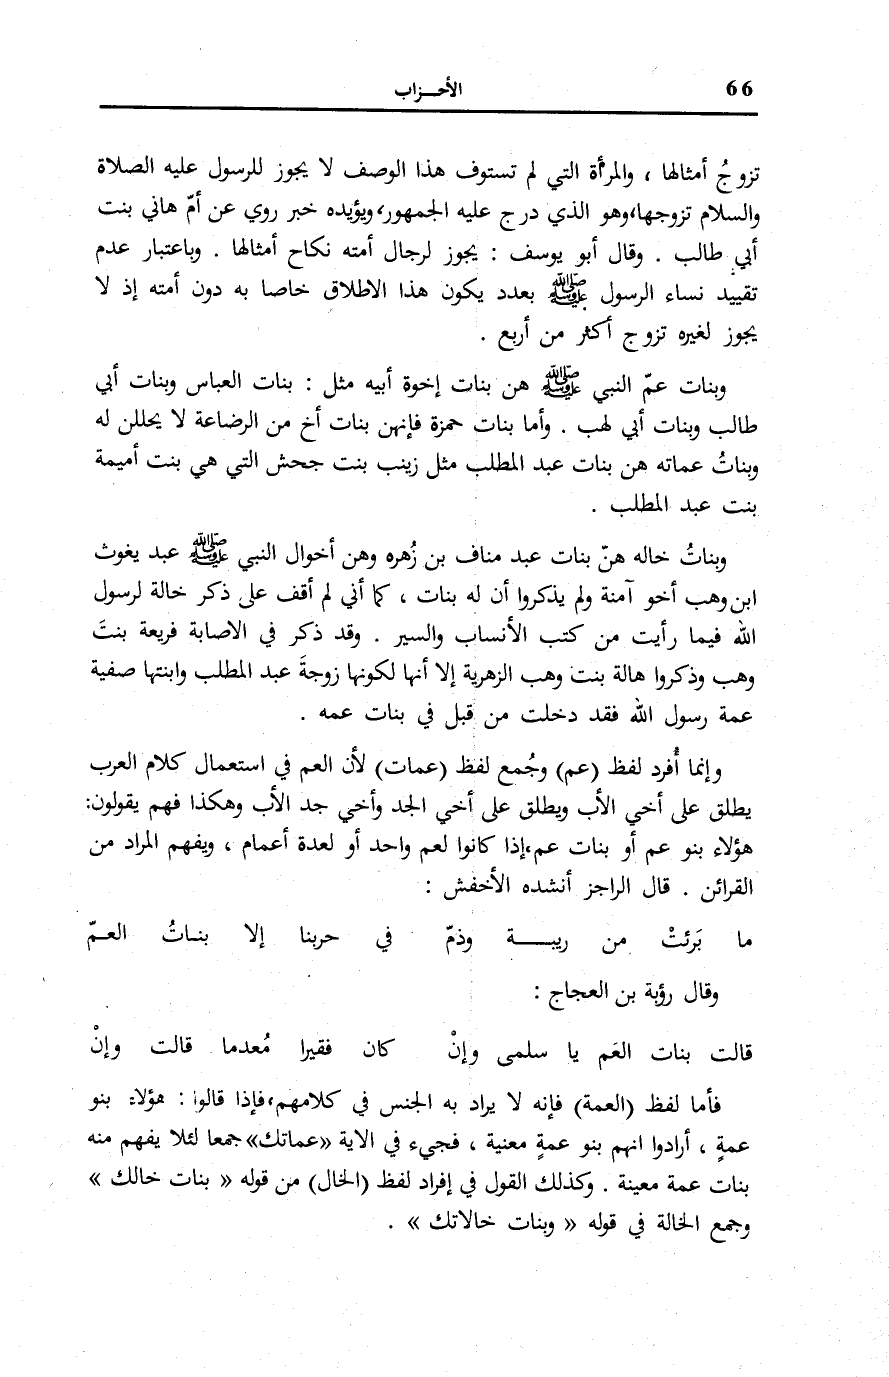 66
الأحـزاب
تزوجُ أمثالها ، والمرأة التي لم تستوف هذا الوصف لا يجوز للرسول عليه الصلاة
والسلام تزوجها،وهو الذي درج عليه الجمهور،ويؤيده خبر روي عن أمّ هاني بنت
أبي طالب . وقال أبو يوسف : يجوز لرجال أمته نكاح أمثالها . وباعتبار عدم
تقييد نساء الرسول ﷺ بعدد يكون هذا الاطلاق خاصا به دون أمته إذ لا
يجوز لغيره تزوج أكثر من أربع .
وبنات عمّ النبي ﷺ هن بنات إخوة أبيه مثل : بنات العباس وبنات أبي
طالب وبنات أبي لهب . وأما بنات حمزة فإنهن بنات أخ من الرضاعة لا يحللن له
وبناتُ عماته هن بنات عبد المطلب مثل زينب بنت جحش التي هي بنت أميمة
بنت عبد المطلب .
وبناتُ خاله هنّ بنات عبد مناف بن زُهره وهن أخوال النبي ﷺ عبد يغوث
ابن وهب أخو آمنة ولم يذكروا أن له بنات ، كما أني لم أقف على ذكر خالة لرسول
الله فيما رأيت من كتب الأنساب والسير . وقد ذكر في الاصابة فريعة بنتَ
وهب وذكروا هالة بنت وهب الزهرية إلا أنها لكونها زوجةَ عبد المطلب وابنتها صفية
عمة رسول الله فقد دخلت من قبل في بنات عمه .
وإنما أُفرد لفظ (عم) وجُمع لفظ (عمات) لأن العم في استعمال كلام العرب
يطلق على أخي الأب ويطلق على أخي الجد وأخي جد الأب وهكذا فهم يقولون:
هؤلاء بنو عم أو بنات عم،إذا كانوا لعم واحد أو لعدة أعمام ، ويفهم المراد من
القرائن . قال الراجز أنشده الأخفش :
ما بَرئتْ من ريبـــة وذمّ في حربنا إلا بنـاتُ العـمّ
وقال رؤبة بن العجاج :
قالت بنات العَم يا سلمى وإنْ كان فقيرا مُعدما قالت وإنْ
فأما لفظ (العمة) فإنه لا يراد به الجنس في كلامهم،فإذا قالوا : هؤلاء بنو
عمةٍ ، أرادوا انهم بنو عمةٍ معنية ، فجيء في الاية «عماتك» جمعا لئلا يفهم منه
بنات عمة معينة . وكذلك القول في إفراد لفظ (الخال) من قوله « بنات خالك »
وجمع الخالة في قوله « وبنات خالاتك » .